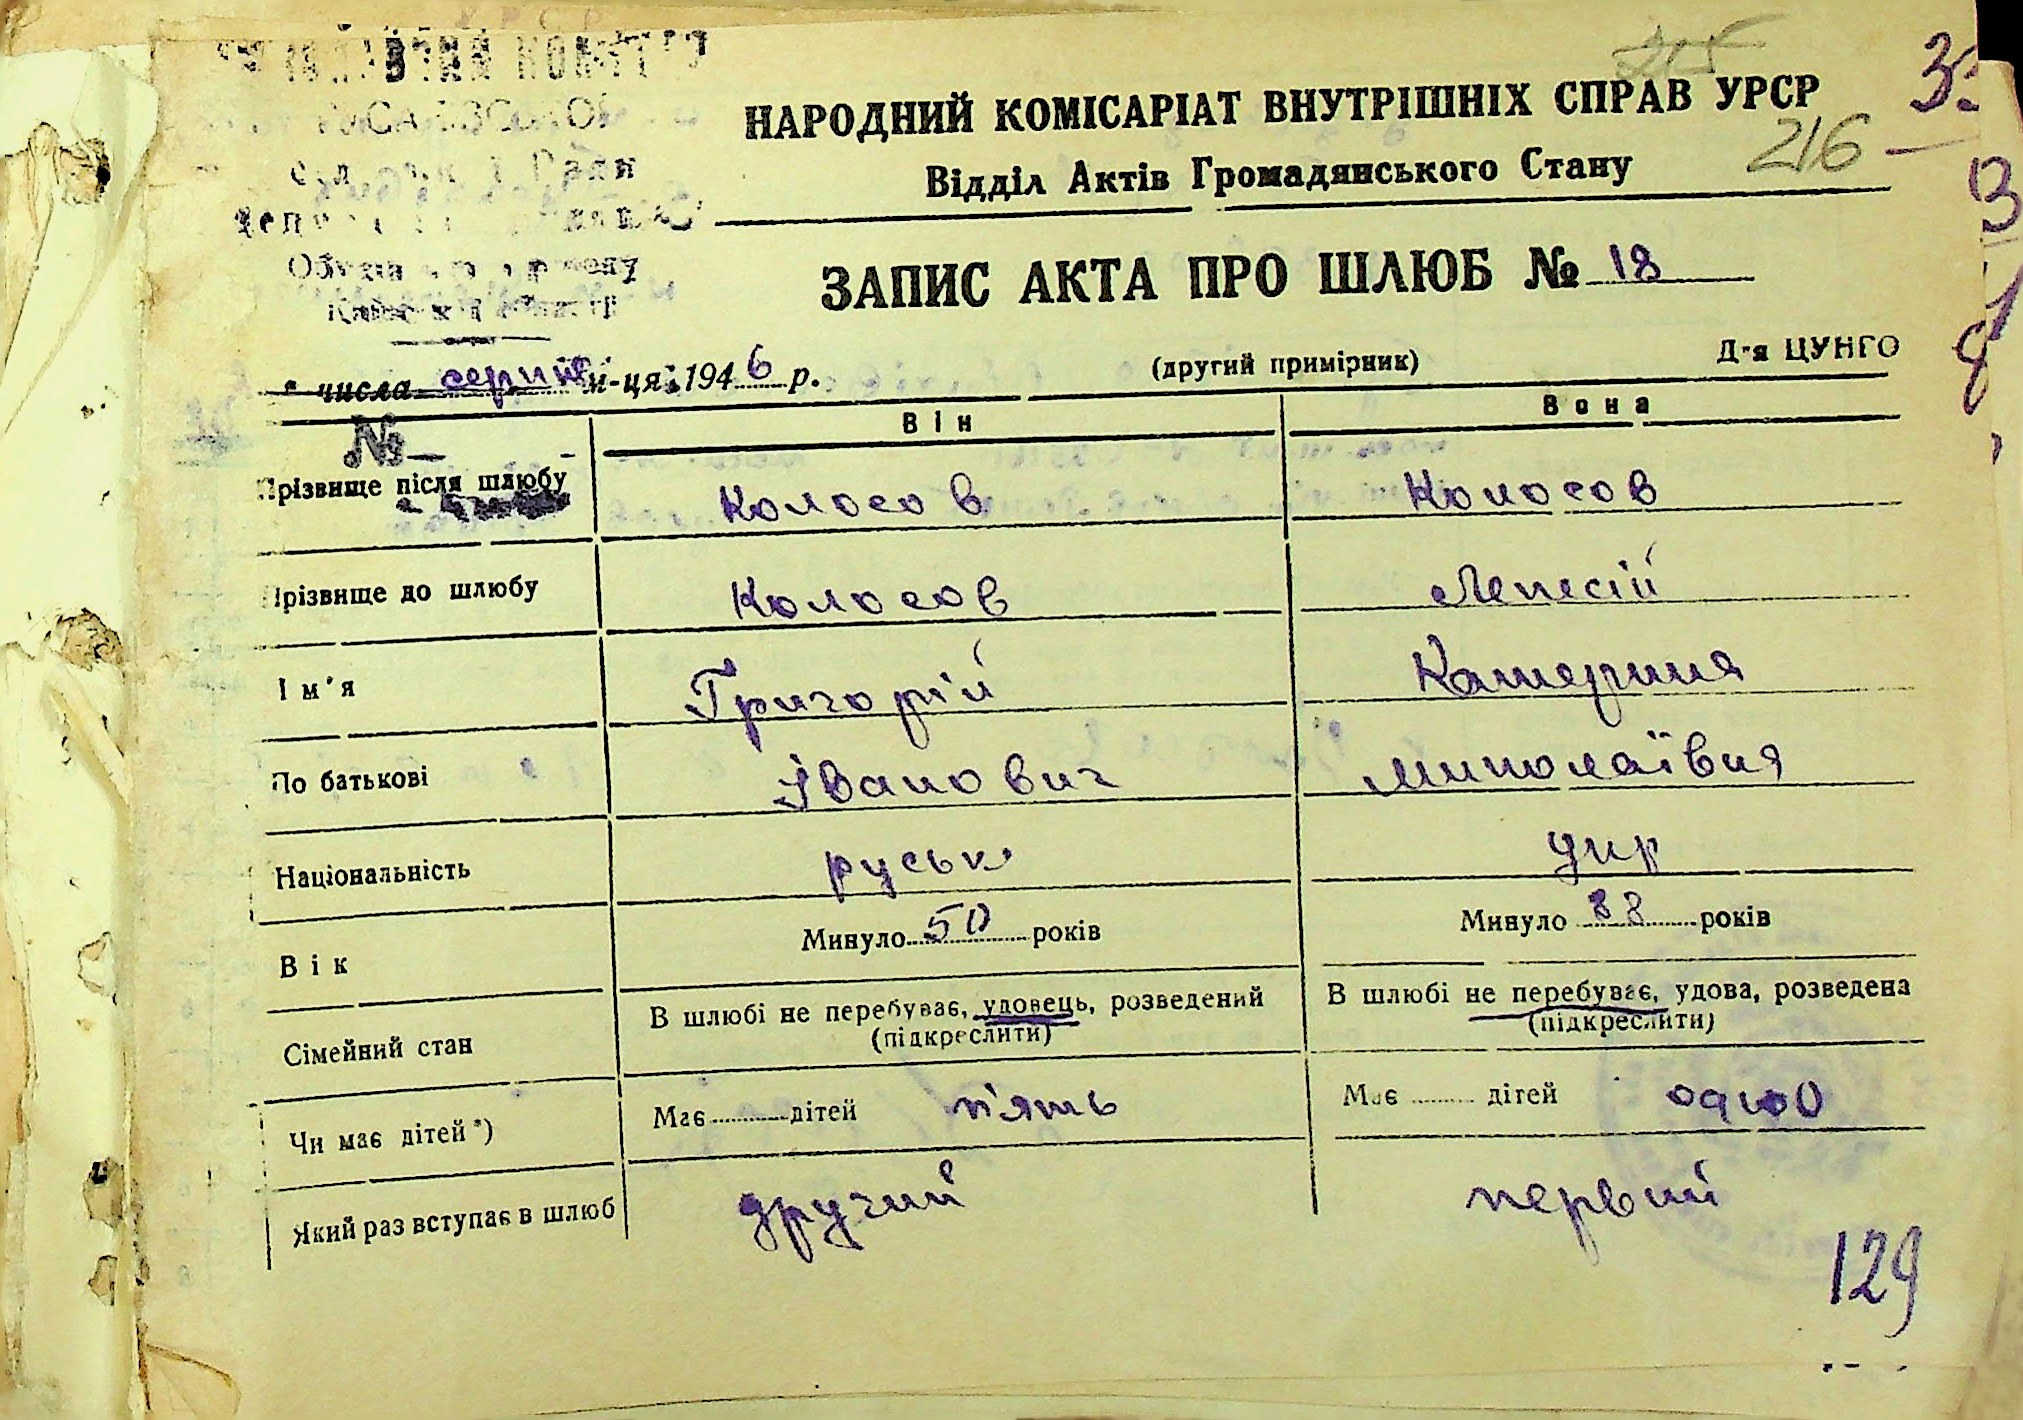 У.Р.С.Р.
215
НАРОДНИЙ КОМІСАРІАТ ВНУТРІШНІХ СПРАВ УРСР
216
Відділ Актів Громадянського Стану
ЗАПИС АКТА ПРО ШЛЮБ № 18
числа серпня м-ця 1946 р.
(другий примірник)
Д-я ЦУНГО
№
Він
Вона
Прізвище після шлюбу
Колосов
Колосов
Прізвище до шлюбу
Колосов
Ім'я
Григорій
Катериня
По батькові
Іванович
Миколаївня
Національність
руськ
укр
Вік
Минуло 50 років
Минуло 38 років
Сімейний стан
В шлюбі не перебуває, удовець, розведений
(підкреслити)
В шлюбі не перебуває, удова, розведена
(підкреслити)
Чи має дітей *)
Має дітей п'ять
Має дітей одно
Який раз вступає в шлюб
другий
первий
129